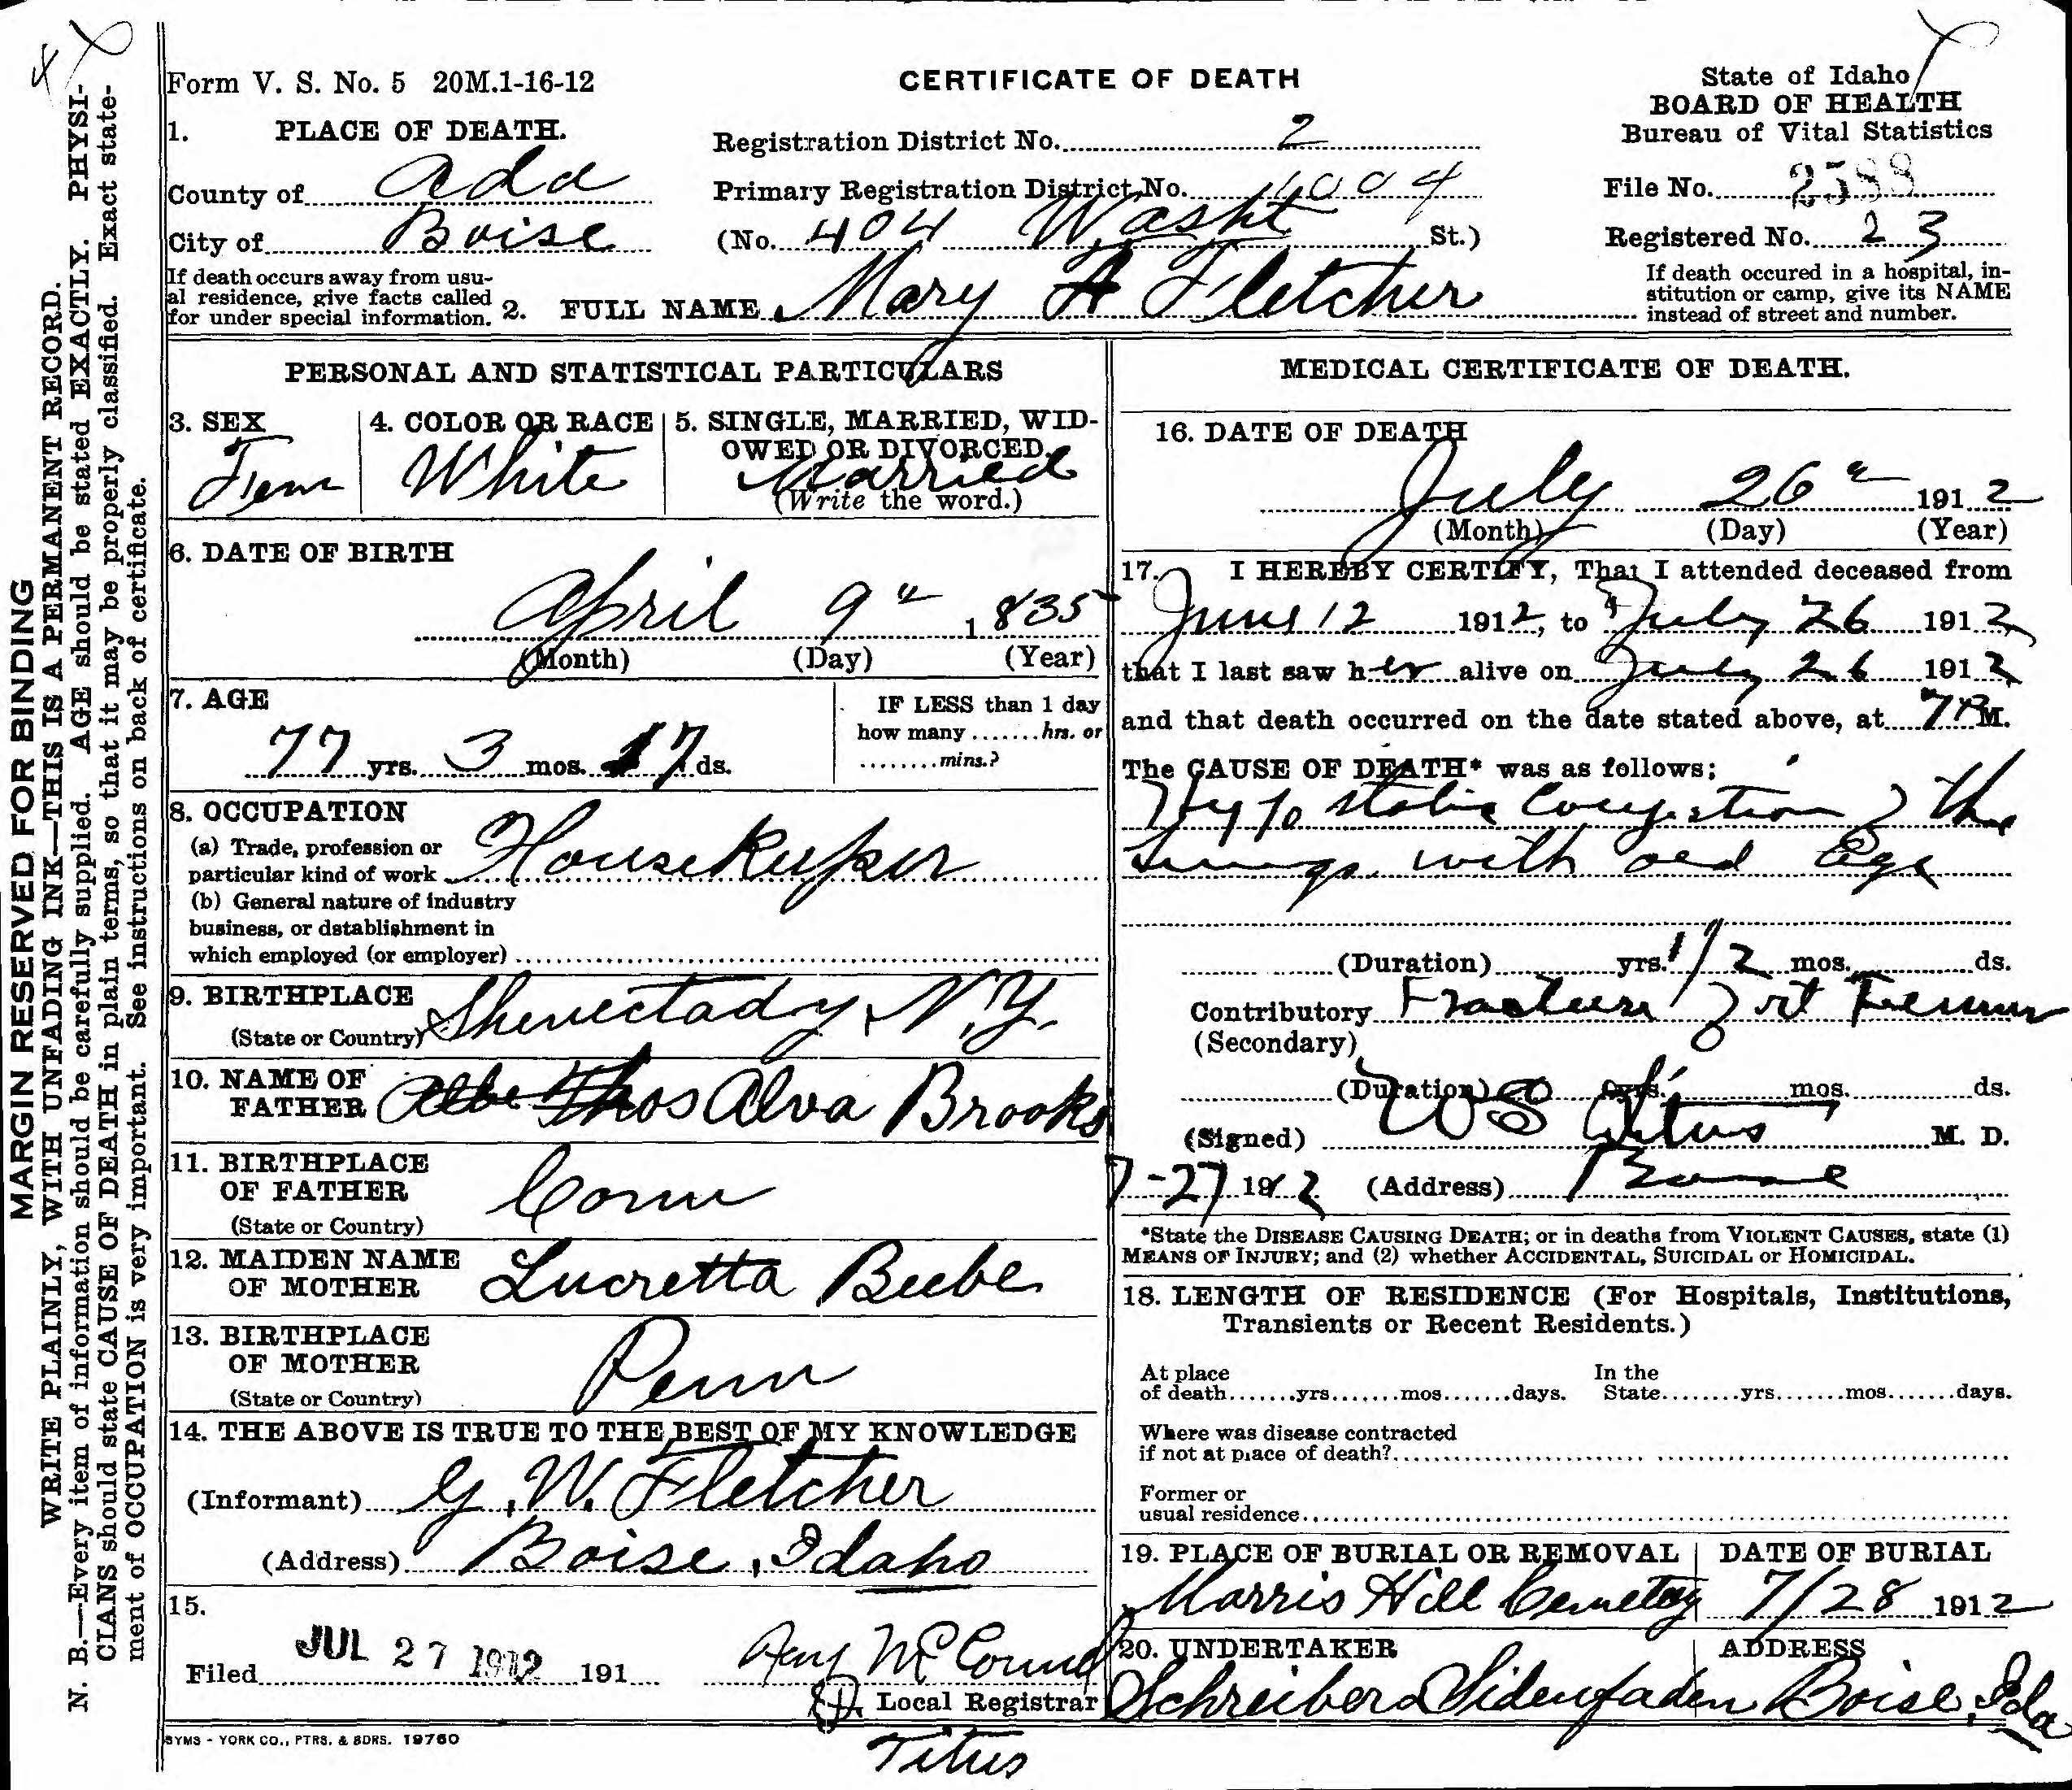 Form V. S. No. 5 20M.1-16-12
CERTIFICATE OF DEATH
State of Idaho
BOARD OF HEALTH
Bureau of Vital Statistics
1. PLACE OF DEATH.
County of Ada
City of Boise
If death occurs away from usu-
al residence, give facts called
for under special information.
Registration District No. 2
Primary Registration District No. 1004
(No. 404 Washt St.)
File No. 2588
Registered No. 23
If death occured in a hospital, in-
stitution or camp, give its NAME
instead of street and number.
2. FULL NAME Mary A Fletcher
PERSONAL AND STATISTICAL PARTICULARS
3. SEX
Fem
4. COLOR OR RACE
White
5. SINGLE, MARRIED, WID-
OWED OR DIVORCED
Married
(Write the word.)
6. DATE OF BIRTH
April 9" 1835
(Month) (Day) (Year)
7. AGE
77 yrs. 3 mos. 17 ds.
IF LESS than 1 day
how many ....... hrs. or
........ mins.?
8. OCCUPATION
(a) Trade, profession or
particular kind of work Housekeeper
(b) General nature of industry
business, or dstablishment in
which employed (or employer)
9. BIRTHPLACE
(State or Country) Shenectady, N.Y.
10. NAME OF
FATHER Thos Alva Brooks
11. BIRTHPLACE
OF FATHER
(State or Country)
Conn
12. MAIDEN NAME
OF MOTHER
Lucretta Beebe
13. BIRTHPLACE
OF MOTHER
(State or Country)
Penn
14. THE ABOVE IS TRUE TO THE BEST OF MY KNOWLEDGE
(Informant) G. W. Fletcher
(Address) Boise, Idaho
15.
Filed JUL 27 1912 191
Local Registrar
Titus
SYMS - YORK CO., PTRS. & BDRS. 19760
MEDICAL CERTIFICATE OF DEATH.
16. DATE OF DEATH
July 26" 1912
(Month) (Day) (Year)
17. I HEREBY CERTIFY, That I attended deceased from
June 12 1912, to July 26 1912
that I last saw her alive on July 26 1912
and that death occurred on the date stated above, at 7 P M.
The CAUSE OF DEATH* was as follows:
Hypostatic Congestion of the
Lungs with old Age
(Duration) yrs. 1/2 mos. ds.
Contributory Fracture of rt Femur
(Secondary)
(Duration) yrs. mos. ds.
(Signed) Titus M. D.
7-27 1912 (Address) Boise
*State the DISEASE CAUSING DEATH; or in deaths from VIOLENT CAUSES, state (1)
MEANS OF INJURY; and (2) whether ACCIDENTAL, SUICIDAL or HOMICIDAL.
18. LENGTH OF RESIDENCE (For Hospitals, Institutions,
Transients or Recent Residents.)
At place
of death.......yrs.......mos.......days.
In the
State........yrs.......mos.......days.
Where was disease contracted
if not at place of death?
Former or
usual residence
19. PLACE OF BURIAL OR REMOVAL
Morris Hill Cemetery
DATE OF BURIAL
7/28 1912
20. UNDERTAKER
Schreiber & Sidenfaden
ADDRESS
Boise, Ida
MARGIN RESERVED FOR BINDING
WRITE PLAINLY, WITH UNFADING INK—THIS IS A PERMANENT RECORD.
N. B.—Every item of information should be carefully supplied. AGE should be stated EXACTLY. PHYSI-
CIANS should state CAUSE OF DEATH in plain terms, so that it may be properly classified. Exact state-
ment of OCCUPATION is very important. See instructions on back of certificate.